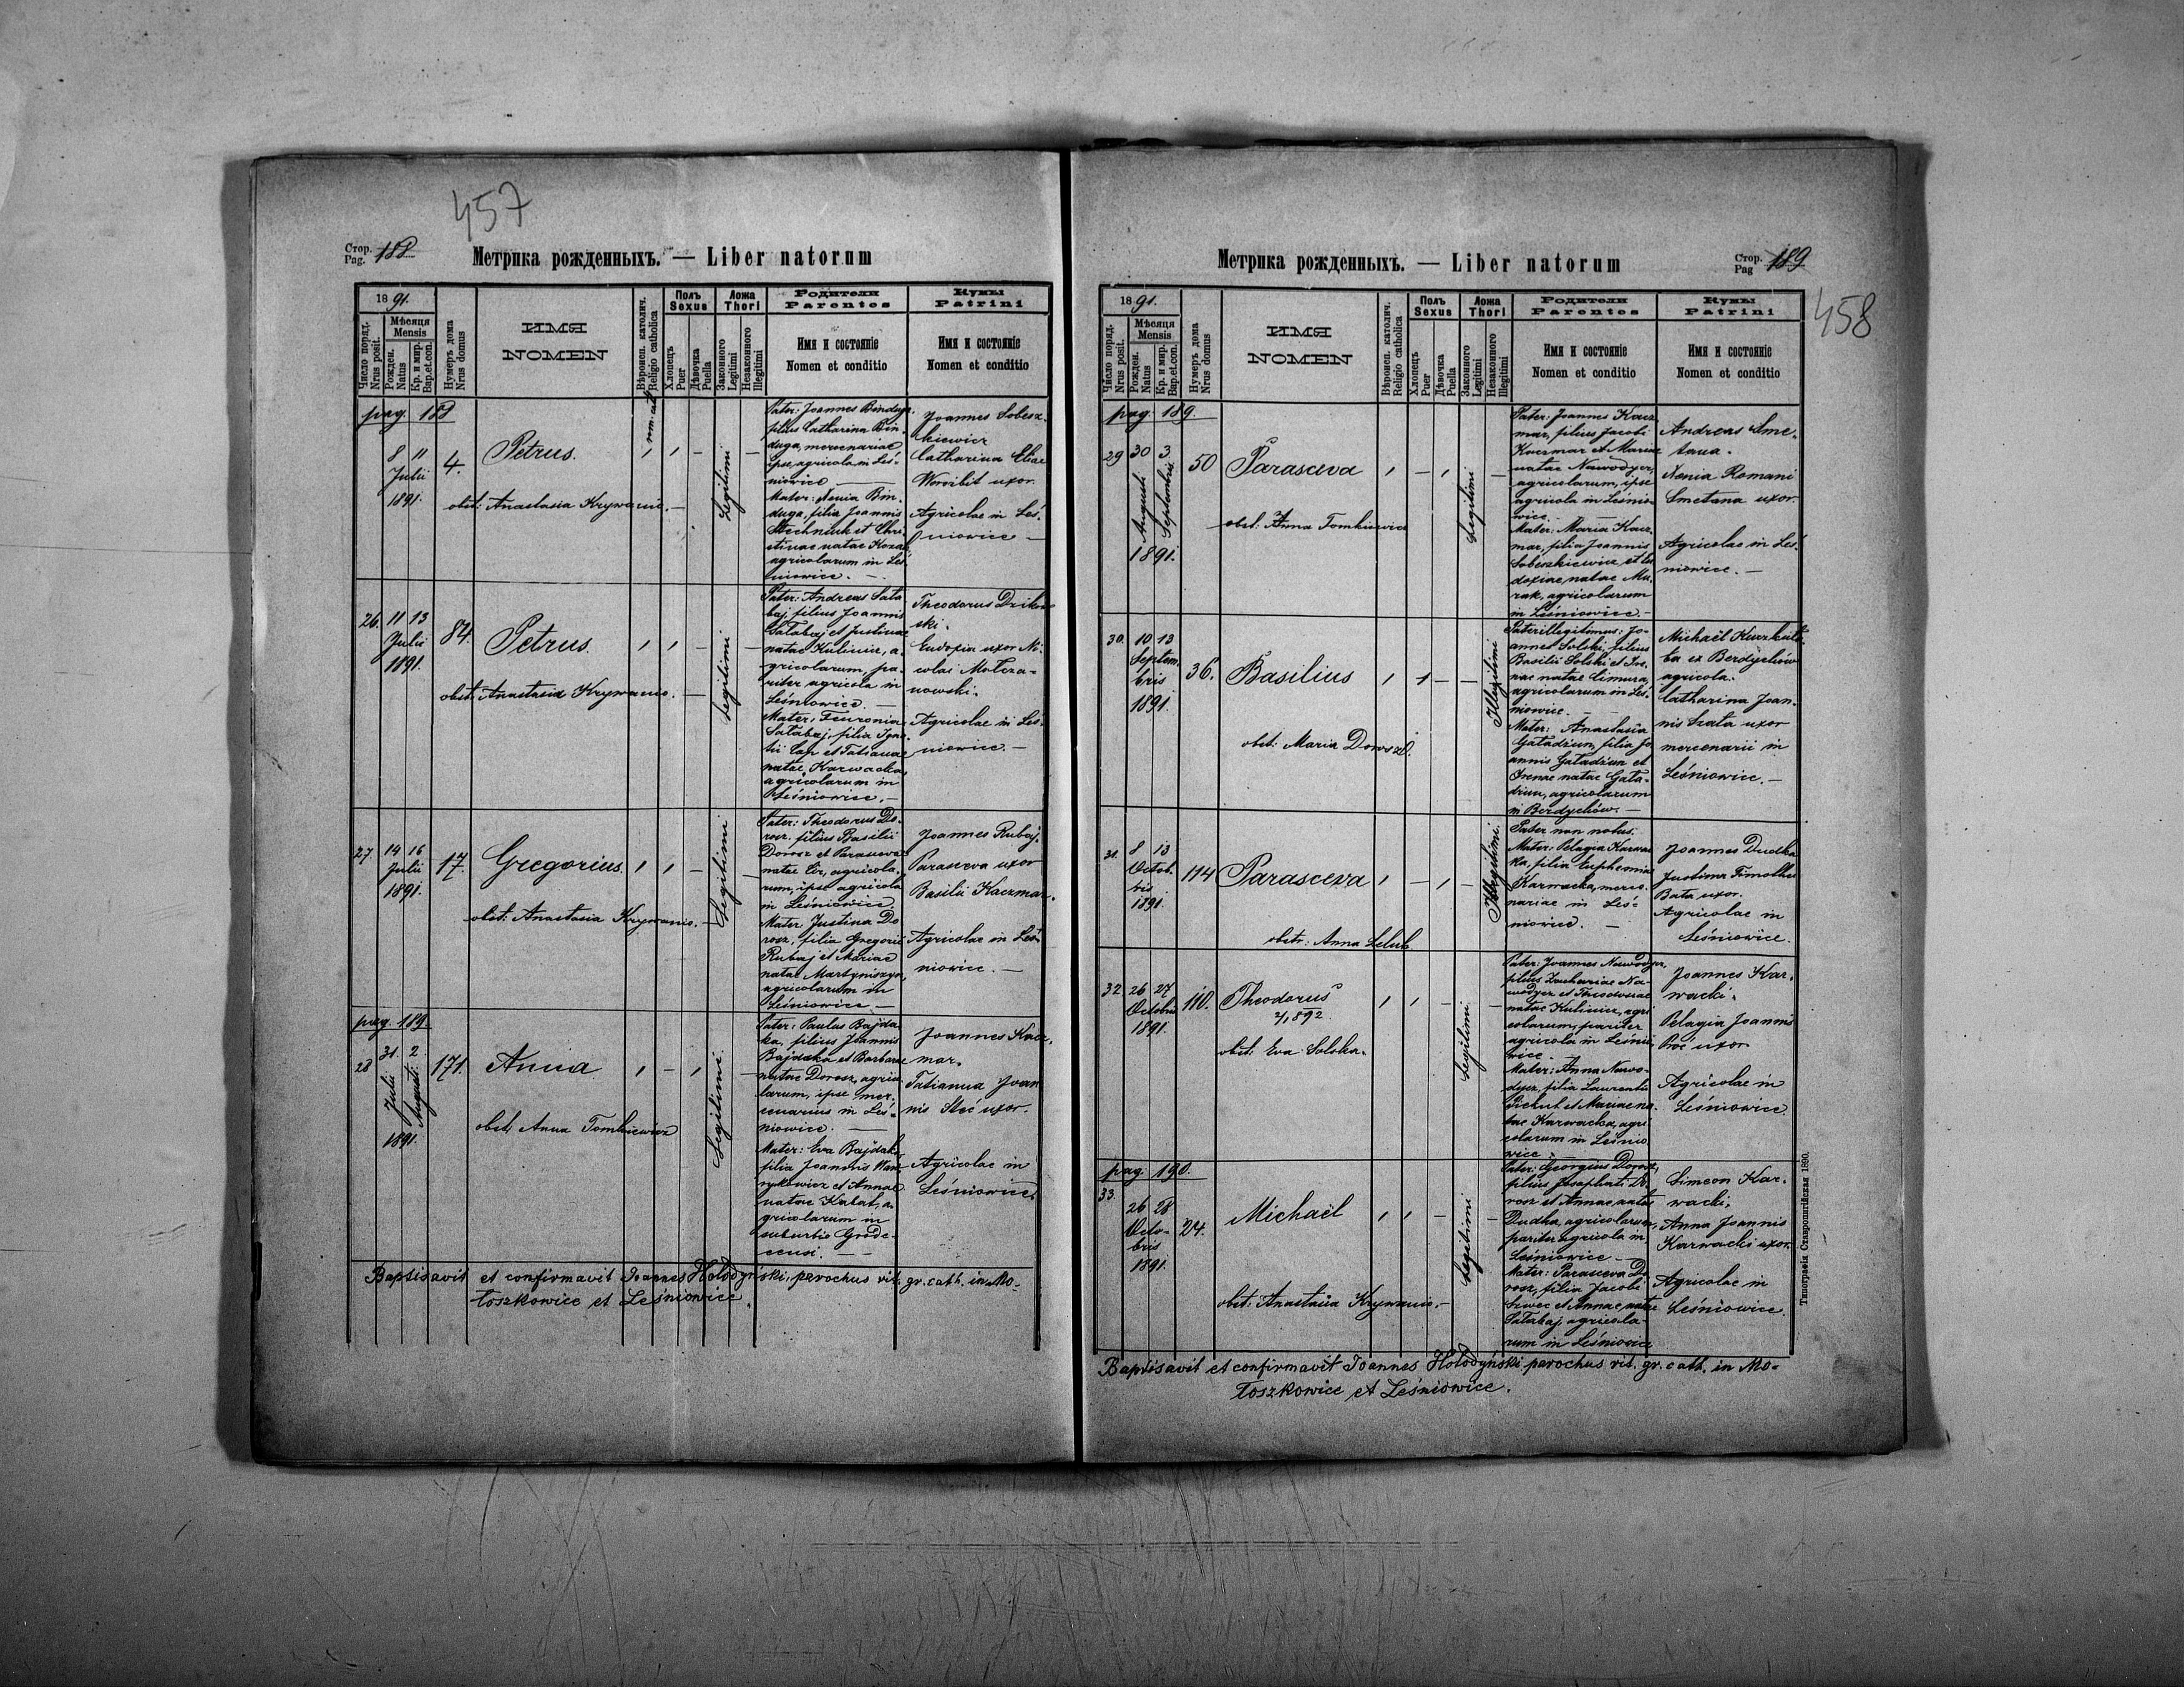 457
Стор. Pag. 188
Метрика рожденныхъ. — Liber natorum
1891.
Число поряд. Nrus posit.
Мѣсяця Mensis
Рожден. Natus
Кр. и мир. Bap.et.con.
Нумеръ дома Nrus domus
ИМЯ
NOMEN
Вѣроисп. католич. Religio catholica
Полъ Sexus
Хлопецъ Puer
Дѣвочка Puella
Ложа Thori
Законного Legitimi
Незаконного Illegitimi
Родители Parentes
Имя и состояніе
Nomen et conditio
Кумы Patrini
Имя и состояніе
Nomen et conditio
pag. 188
8 11
Julii
1891.
4.
Petrus.
obst: Anastasia Krywanio.
Legitimi
Pater: Joannes Binduga,
filius Catharina Bin-
duga, mercenariae
ipse, agricola in Leś-
niowice
Mater: Xenia Bin-
duga, filia Joannis
Stechniuk et Chri-
stinae natae Kozak
agricolarum in Leś-
niowice.
Joannes Sobesz-
kiewicz
Catharina Eliae
Worobit uxor.
Agricolae in Leś-
niowice
26. 11 13
Julii
1891.
84.
Petrus.
obst: Anastasia Krywanio.
Legitimi
Pater: Andreas Sała-
baj filius Joannis
Sałabaj et Justinae
natae Kulinicz, a-
gricolarum, pa-
riter agricola in
Leśniowice.
Mater: Feuronia
Sałabaj, filia Igna-
tii Cap et Tatianae
natae Karwacka,
agricolarum in
Leśniowice.
Theodorus
Eudoxia uxor Ni-
colai
nowski.
Agricolae in Leś-
niowice.
27. 14 16
Julii
1891.
17.
Gregorius.
obst: Anastasia Krywanio.
Legitimi
Pater: Theodorus Do-
rosz, filius Basilii
Dorosz et Parascevae
natae Cir, agricola-
rum, ipse agricola
in Leśniowice.
Mater Justina Do-
rosz, filia Gregorii
Rubaj et Mariae
natae Martyniszyn,
agricolarum in
Leśniowice
Joannes Rubaj.
Parasceva uxor
Basilii Kaczmar.
Agricolae in Leś-
niowice.
pag. 189.
28 31. 2.
Julii Augusti.
1891.
171.
Anna
obst: Anna Tomkiewicz
Legitimi.
Pater: Paulus Bajda-
ka, filius Joannis
Bajdaka et Barbarae
natae Dorosz, agrico-
larum, ipse mer-
cenarius in Leś-
niowice.
Mater: Eva Bajdaka,
filia Joannis
et Annae
natae Kałat, a-
gricolarum in
suburbio Grode-
censi.
Joannes Kacz-
mar.
Tatianna Joan-
nis Steć uxor.
Agricolae in
Leśniowice.
Baptisavit et confirmavit Joannes Hołodyński, parochus rit. gr. cath. in Mo-
łoszkowice et Leśniowice.
Метрика рожденныхъ. — Liber natorum
Стор. Pag 189
458
1891.
Число поряд. Nrus posit.
Мѣсяця Mensis
Рожден. Natus
Кр. и мир. Bap.et.con.
Нумеръ дома Nrus domus
ИМЯ
NOMEN
Вѣроисп. католич. Religio catholica
Полъ Sexus
Хлопецъ Puer
Дѣвочка Puella
Ложа Thori
Законного Legitimi
Незаконного Illegitimi
Родители Parentes
Имя и состояніе
Nomen et conditio
Кумы Patrini
Имя и состояніе
Nomen et conditio
pag. 189.
29 30 3
Augusti Septembris
1891.
50
Parasceva
obst: Anna Tomkiewicz
Legitimi
Pater: Joannes Kacz-
mar, filius Jacobi
Kaczmar et Mariae
natae Nawodycz,
agricolarum, ipse
agricola in Leśnio-
wice.
Mater: Maria Kacz-
mar, filia Joannis
Sobeszkiewicz et Eu-
doxiae, natae Mu-
rak, agricolarum
in Leśniowice.
Andreas Sme-
tana.
Xenia Romani
Smetana uxor.
Agricolae in Leś-
niowice.
30. 10 13
Septem-
bris
1891.
36.
Basilius
obst: Maria Dorosz.
Illegitimi
Pater illegitimus: Jo-
annes Solski, filius
Basilii Solski et Ire-
nae natae Cimura,
agricolarum in Leś-
niowice.
Mater: Anastasia
Gatadziun, filia Jo-
annis Gatadziun et
Irenae natae Gata-
dziun, agricolarum
in Berdychów.
Michaël
ex Berdychów
agricola.
Catharina Joan-
nis Szata uxor
mercenarii in
Leśniowice.
31. 8 13
Octob-
ris
1891.
114
Parasceva
obstr: Anna Lelub
Illegitimi.
Pater non notus.
Mater: Pelagia Karwac-
ka, filia Euphemiae
Karwacka, merce-
nariae in Leś-
niowice.
Joannes Dudka
Justina Timothei
Bata uxor.
Agricolae in
Leśniowice.
32 26 27
Octobris
1891.
110.
Theodorus
obst: Eva Solska.
Legitimi
Pater: Joannes Nawodycz,
filius Zachariae Na-
wodycz et Theodosiae
natae Kulinicz, agri-
colarum, pariter
agricola in Leśnio-
wice
Mater: Anna Nawo-
dycz, filia Laurentii
et Mariae na-
tae Karwacka, agri-
colarum in Leśnio-
wice.
Joannes Kar-
wacki.
Pelagia Joannis
Proć uxor
Agricolae in
Leśniowice.
pag. 190.
33. 26 28
Octo-
bris
1891.
24.
Michaël
obst: Anastasia Krywanio.
Legitimi
Pater: Georgius Dorosz,
filius Josaphati Do-
rosz et Annae natae
Dudka, agricolarum,
pariter agricola in
Leśniowice
Mater: Parasceva Do-
rosz, filia Jacobi
Szwec et Annae natae
Sałabaj, agricola-
rum in Leśniowice
Simeon Kar-
wacki,
Anna Joannis
Karwacki uxor.
Agricolae in
Leśniowice.
Baptisavit et confirmavit Joannes Hołodyński parochus rit. gr. cath. in Mo-
łoszkowice et Leśniowice.
Типографія Ставропигійская 1890.